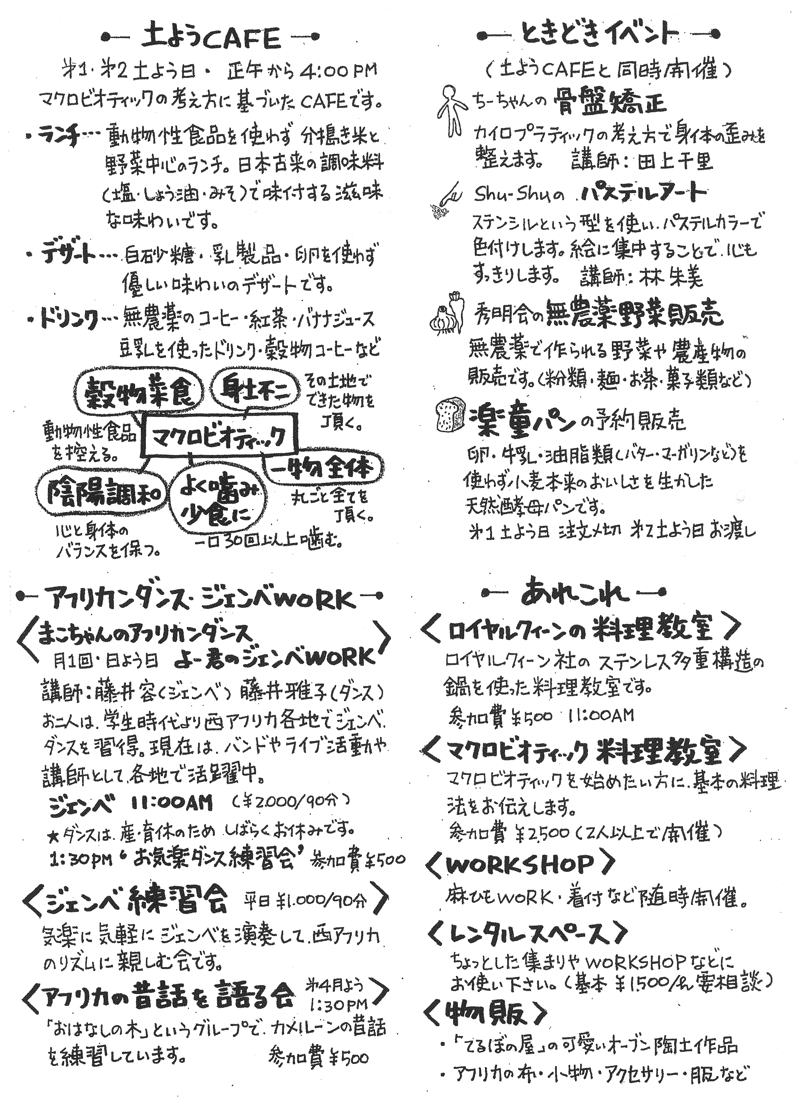 土ようCAFE
第1・第2土よう日・ 正午から4:00PM
マクロビオティックの考え方に基づいたCAFEです。
・ランチ… 動物性食品を使わず 分搗き米と
野菜中心のランチ。日本古来の調味料
(塩・しょう油・みそ)で味付する滋味
な味わいです。
・デザート… 白砂糖・乳製品・卵を使わず
優しい味わいのデザートです。
・ドリンク… 無農薬のコーヒー・紅茶・バナナジュース
豆乳を使ったドリンク・穀物コーヒーなど
穀物菜食
身土不二
その土地で
できた物を
頂く。
動物性食品
を控える。
マクロビオティック
一物全体
丸ごと全てを
頂く。
陰陽調和
心と身体の
バランスを保つ。
よく噛み
少食に
一口30回以上噛む。
アフリカンダンス・ジェンベWORK
〈まこちゃんのアフリカンダンス
月1回・日よう日 よー君のジェンベWORK〉
講師:藤井容(ジェンベ) 藤井雅子(ダンス)
お二人は、学生時代より西アフリカ各地でジェンベ、
ダンスを習得。現在は、バンドやライブ活動や
講師として、各地で活躍中。
ジェンベ 11:00AM (¥2,000/90分)
★ダンスは、産・育休のため しばらくお休みです。
1:30PM ‘お気楽ダンス練習会’ 参加費¥500
〈ジェンベ練習会 平日¥1,000/90分〉
気楽に気軽にジェンベを演奏して、西アフリカ
のリズムに親しむ会です。
〈アフリカの昔話を語る会 第4月よう 1:30PM〉
「おはなしの木」というグループで、カメルーンの昔話
を練習しています。 参加費¥500
ときどきイベント
(土ようCAFEと同時開催)
ちーちゃんの 骨盤矯正
カイロプラティックの考え方で身体の歪みを
整えます。 講師:田上千里
Shu-Shuの パステルアート
ステンシルという型を使い、パステルカラーで
色付けします。絵に集中することで、心も
すっきりします。 講師:林 朱美
秀明会の無農薬野菜販売
無農薬で作られる野菜や農産物の
販売です。(粉類・麺・お茶・菓子類など)
楽童パンの予約販売
卵・牛乳・油脂類(バター・マーガリンなど)を
使わず小麦本来のおいしさを生かした
天然酵母パンです。
第1土よう日 注文〆切 第2土よう日お渡し
あれこれ
〈ロイヤルクィーンの料理教室〉
ロイヤルクィーン社のステンレス多重構造の
鍋を使った料理教室です。
参加費¥500 11:00AM
〈マクロビオティック料理教室〉
マクロビオティックを始めたい方に、基本の料理
法をお伝えします。
参加費 ¥2,500(2人以上で開催)
〈WORKSHOP〉
麻ひもWORK・着付など随時開催。
〈レンタルスペース〉
ちょっとした集まりやWORKSHOPなどに
お使い下さい。(基本 ¥1500/h、要相談)
〈物販〉
・「てるぼの屋」の可愛いオーブン陶土作品
・アフリカの布・小物・アクセサリー・服など